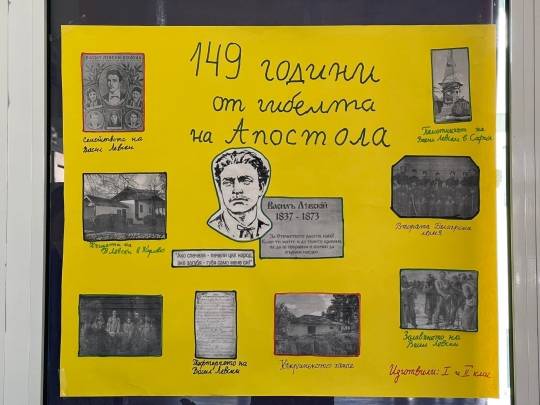 149 години
от гибелта
на Апостола
Семейството на
Васил Левски
Паметникът на
Васил Левски в София
Василъ Лѣвскій
1837 - 1873
Къщата на
В. Левски в Карлово
Втората българска
легия
"Ако спечеля - печели цял народ,
ако загубя - губя само мене си!"
Тефтерчето на
Васил Левски
Къкринското ханче
Залавянето на
Васил Левски
Изготвили: I и II клас